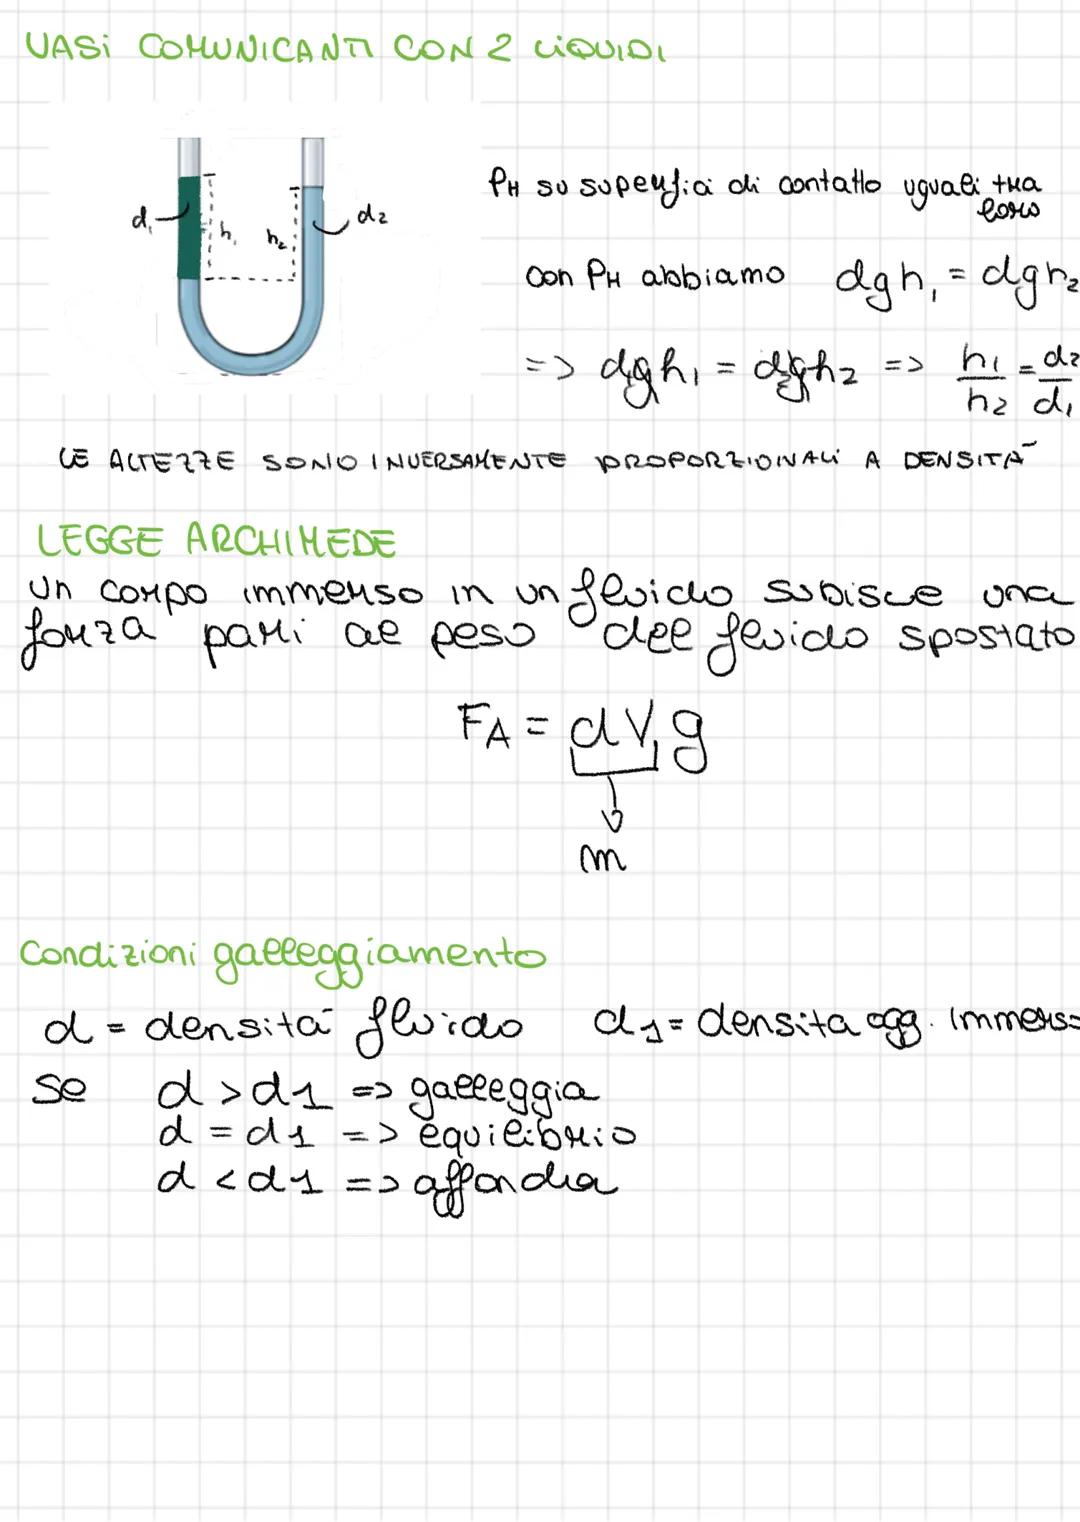 VASI COMUNICANTI CON 2 LIQUIDI
d₁ h₁ h₂ d₂
PH su superfici di contatto uguali tra
loro
con PH abbiamo dgh₁ = dgh₂
=> dgh₁ = dgh₂ => h₁/h₂ = d₂/d₁
LE ALTEZZE SONO INVERSAMENTE PROPORZIONALI A DENSITÀ
LEGGE ARCHIMEDE
un corpo immerso in un fluido subisce una
forza pari al peso del fluido spostato
FA = dV₁g
m
Condizioni galleggiamento
d = densità fluido d1 = densita ogg. immerso
se d > d1 => galleggia
d = d1 => equilibrio
d < d1 => affonda